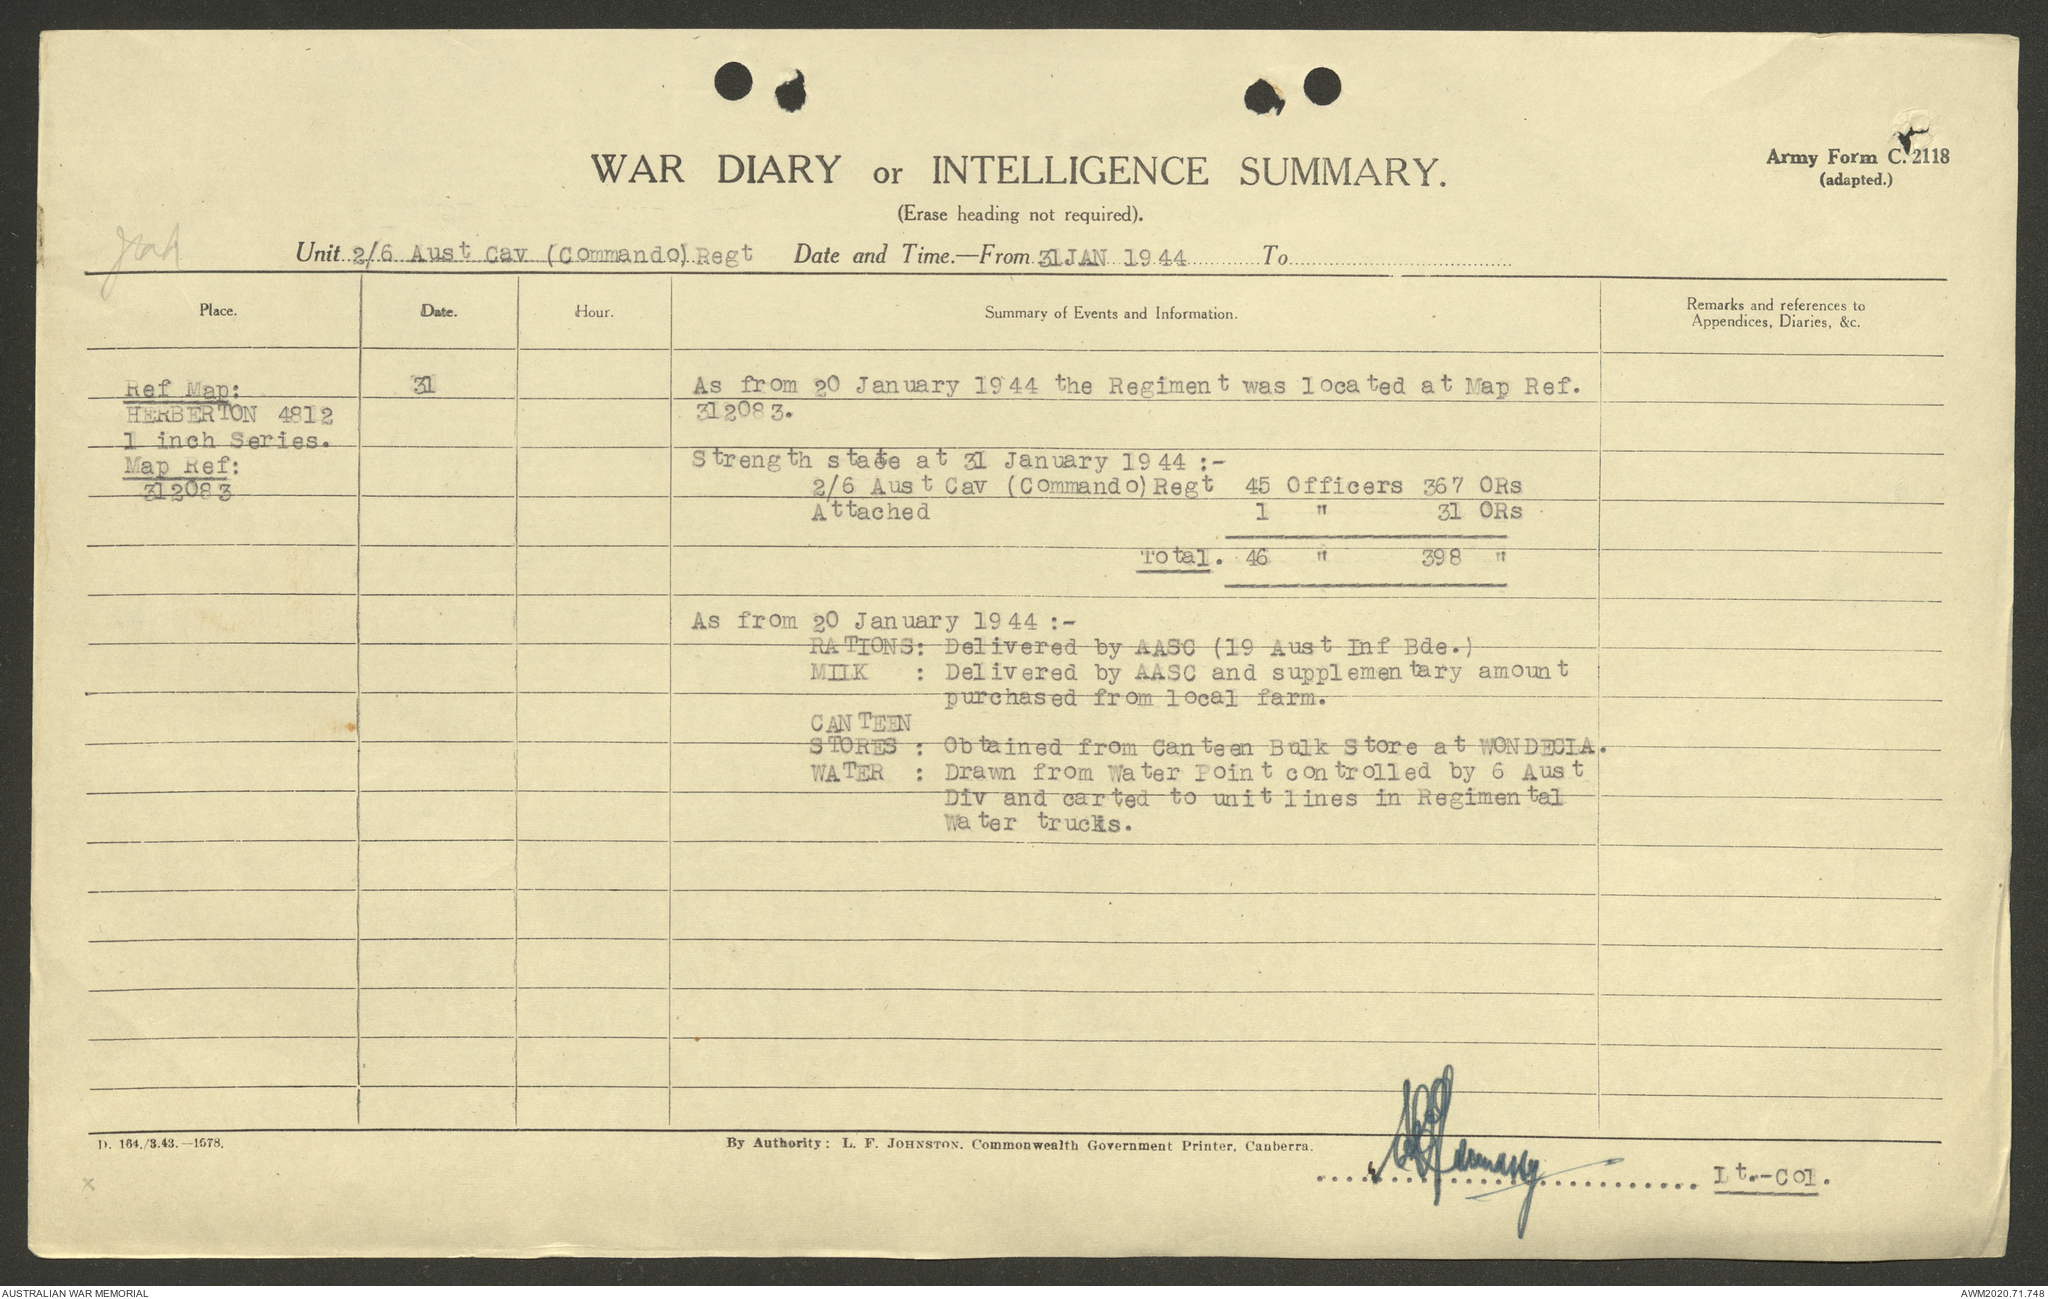 Army Form C. 2118
(adapted.)
WAR DIARY or INTELLIGENCE SUMMARY.
(Erase heading not required).
Unit 2/6 Aust Cav (Commando) Regt Date and Time.—From 31 JAN 1944 To
Place. Date. Hour. Summary of Events and Information. Remarks and references to
Appendices, Diaries, &c.
Ref Map: 31 As from 20 January 1944 the Regiment was located at Map Ref.
HERBERTON 4812 312083.
1 inch Series.
Map Ref: Strength state at 31 January 1944 :-
312083 2/6 Aust Cav (Commando) Regt 45 Officers 367 ORs
Attached 1 " 31 ORs
Total. 46 " 398 "
As from 20 January 1944 :-
RATIONS: Delivered by AASC (19 Aust Inf Bde.)
MILK : Delivered by AASC and supplementary amount
purchased from local farm.
CANTEEN
STORES : Obtained from Canteen Bulk Store at WONDECIA.
WATER : Drawn from Water Point controlled by 6 Aust
Div and carted to unit lines in Regimental
Water trucks.
D. 164./3.43.—1578.
By Authority: L. F. JOHNSTON, Commonwealth Government Printer, Canberra.
Lt.-Col.
AUSTRALIAN WAR MEMORIAL
AWM2020.71.748